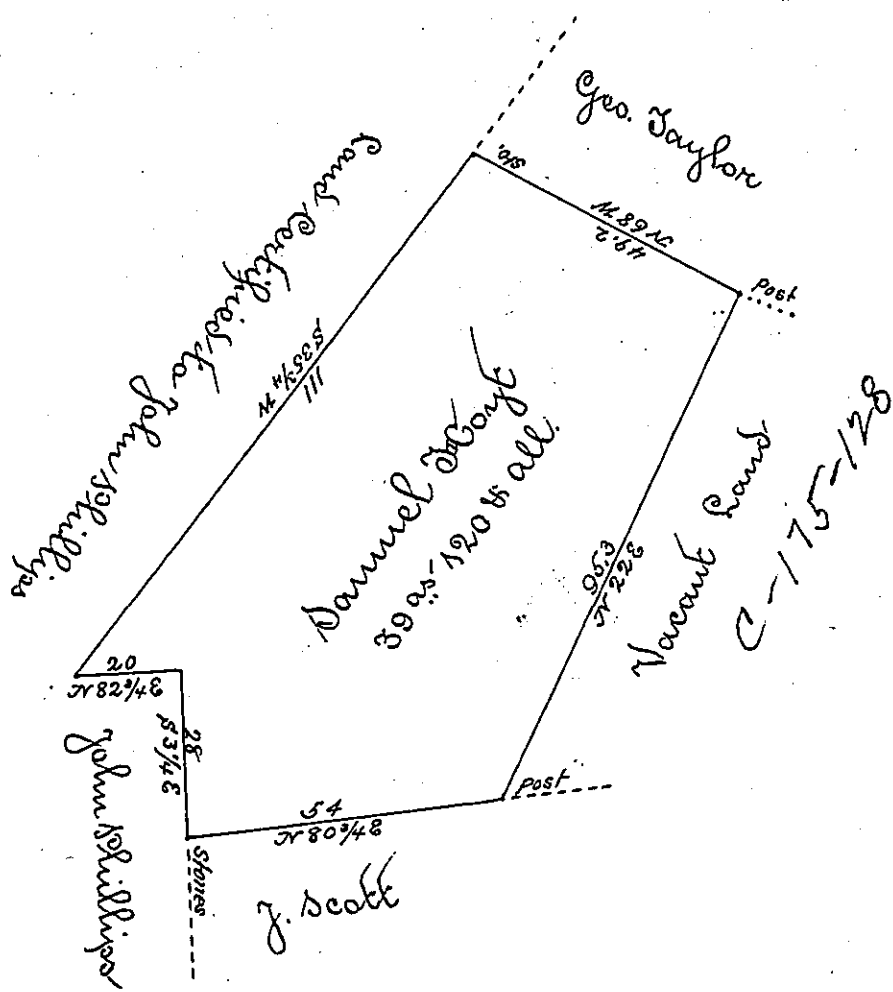 Geo. Taylor
S/o.
N 68 W
49.2
Post
Land Certified to John Phillips
S 35 3/4 W
111
Samuel Hoyt
39 as- 120 & all.
95.3
N 22 E
Vacant Land
C-175-128
20
N 82 3/4 E
28
S 3 1/4 E
John Phillips
54
N 80 3/4 E
Post
Stones
J. Scott